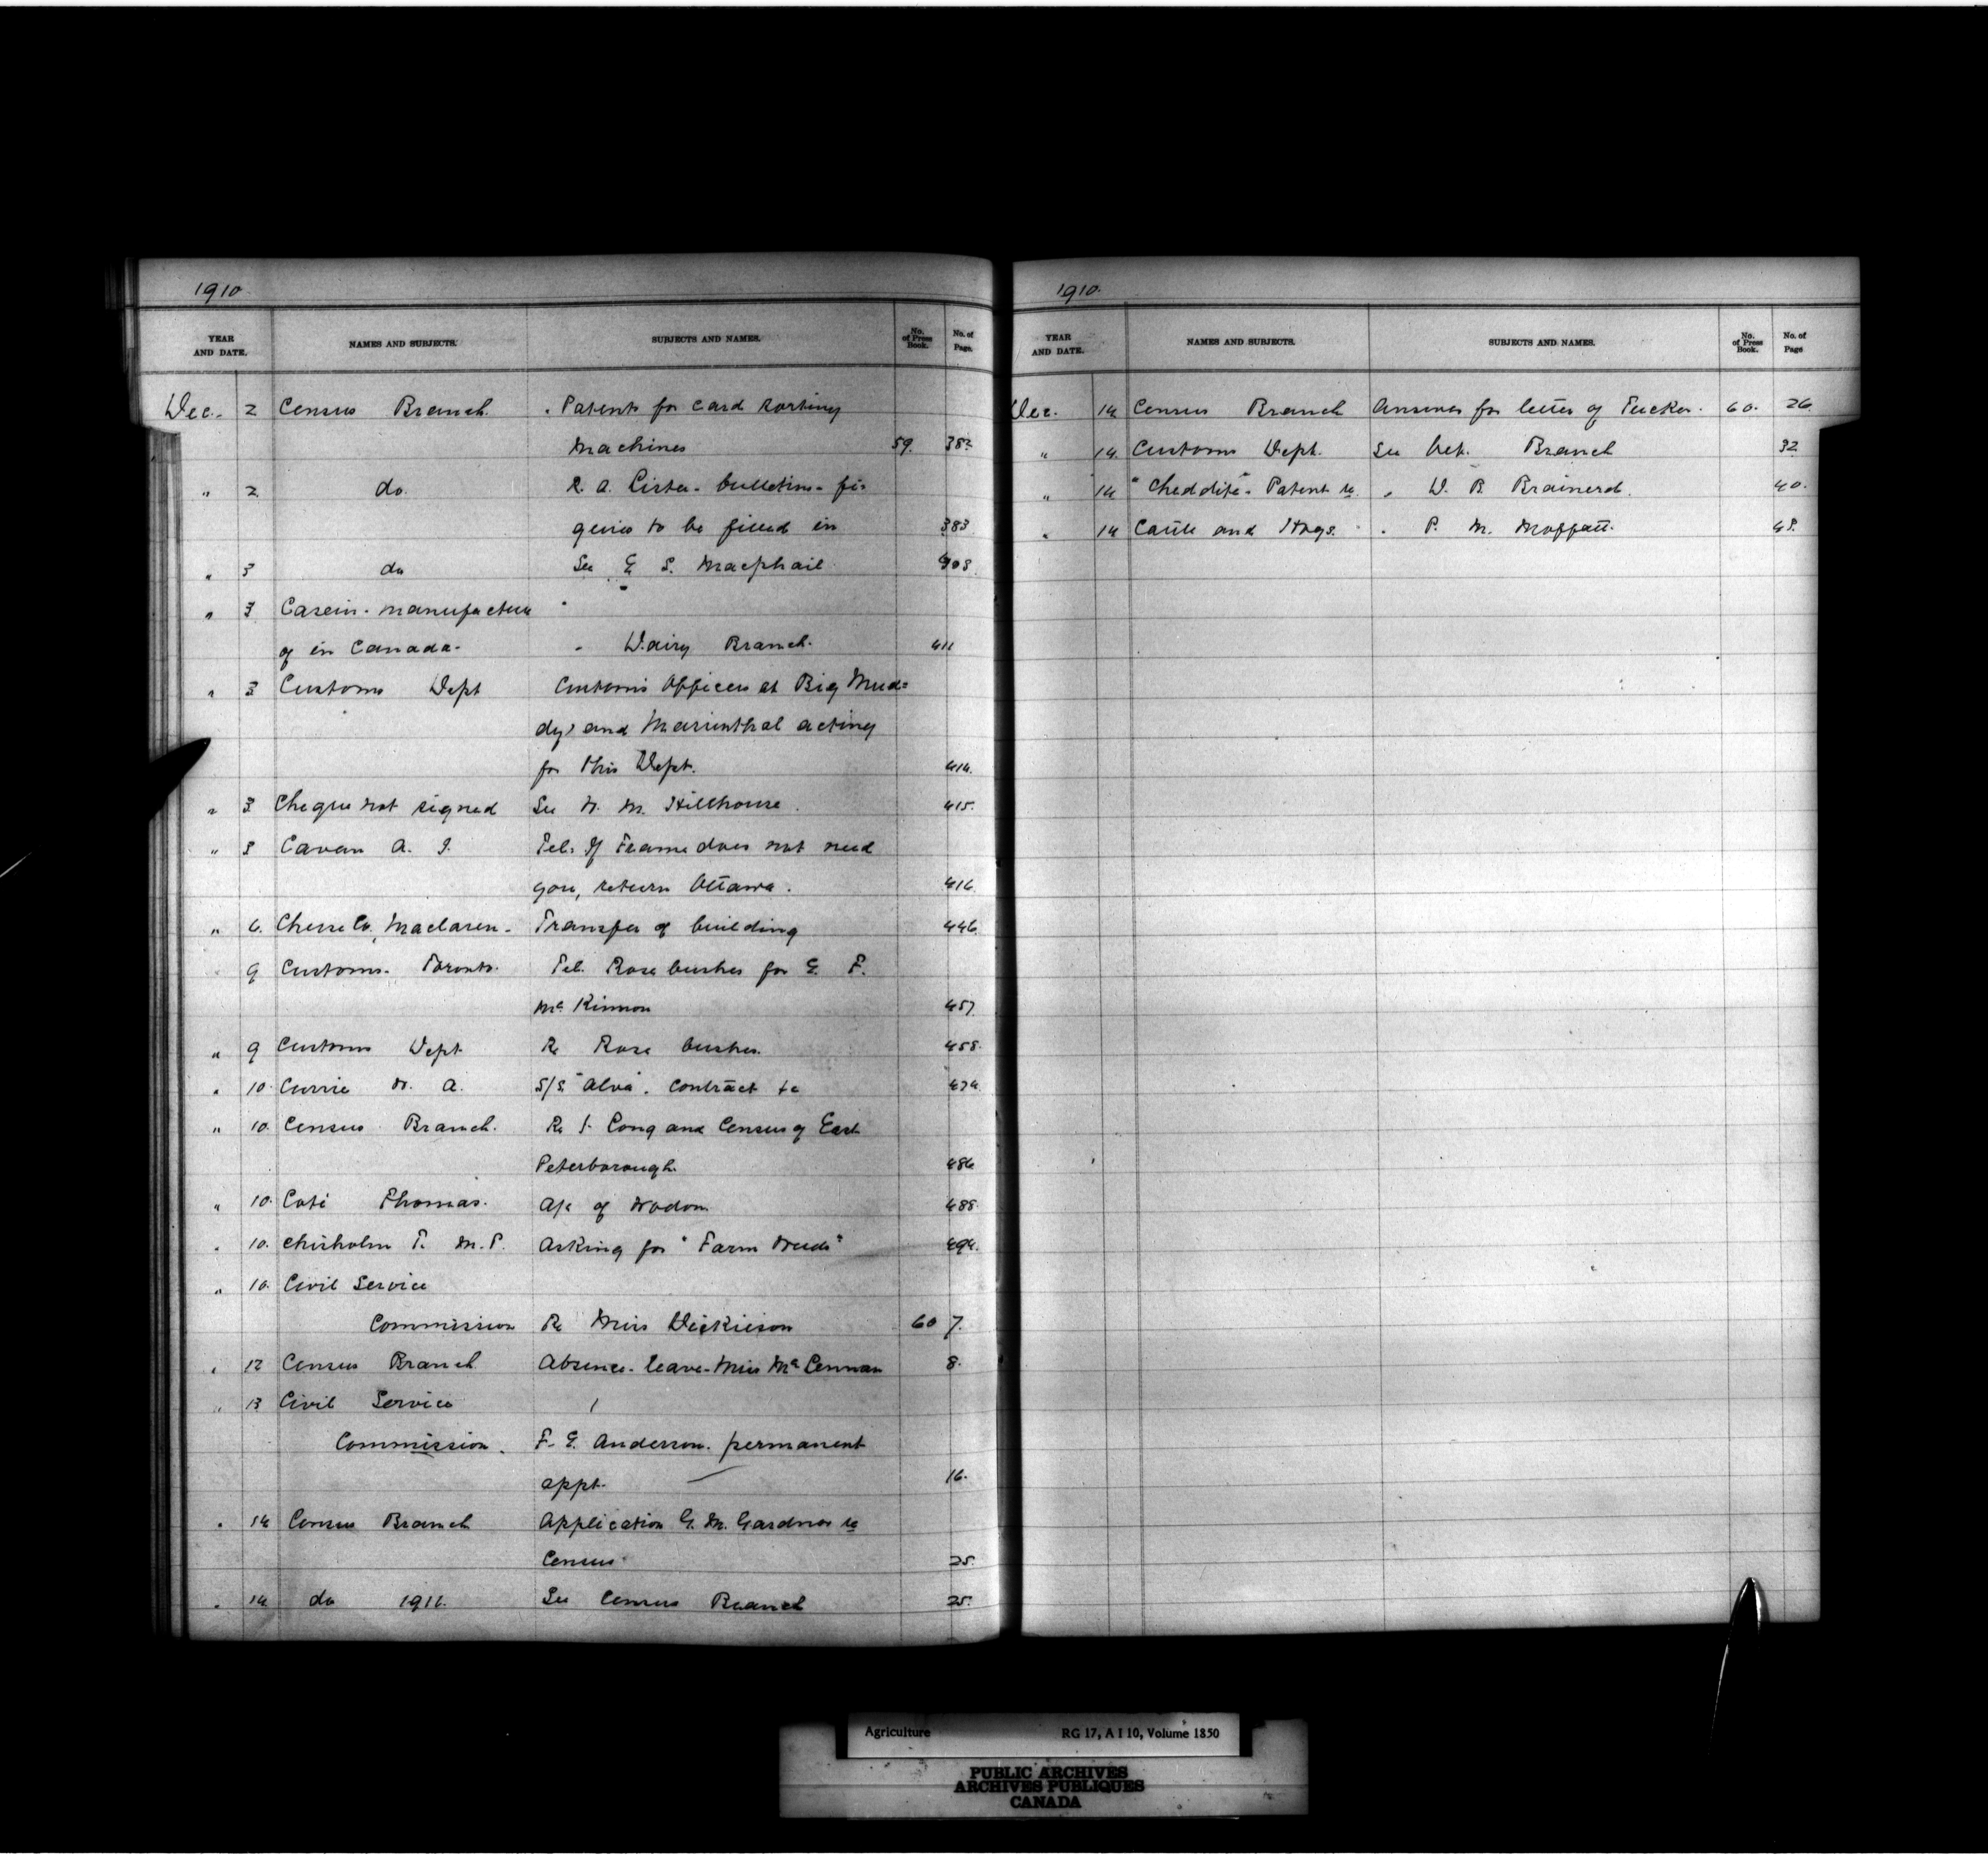 1910.
YEAR AND DATE. NAMES AND SUBJECTS. SUBJECTS AND NAMES. No. of Press Book. No. of Page.
Dec. 2 Census Branch. Patents for card sorting
machines 59. 382
" 2 do. R. A. Lister - bulletins - fi-
gures to be filled in 383
" 3 do See E. S. Macphail 408.
" 3 Casein - manufacture
of in Canada - " Dairy Branch. 411
" 3 Customs Dept Customs Officers at Big Mud=
dy, and Marienthal acting
for this Dept. 414.
" 3 Cheque not signed See N. M. Hillhouse. 415.
" 3 Cavan A. J. Tel. If Frame does not need
you, return Ottawa. 416.
" 6. Cheese Co., Maclaren - Transfer of building 446.
9 Customs - Toronto. Tel. Rose bushes for G. F.
McKinnon 457.
" 9 Customs Dept Re Rose bushes. 458.
" 10. Currie N. A. S/S "Alva". contract re 474.
" 10. Census Branch. Re J. Long and Census of East
Peterborough. 486.
" 10. Coté Thomas. A/c of 488.
" 10. Chisholm T. M.P. Asking for "Farm Weeds" 494.
" 10. Civil Service
Commission Re Miss Dickieson 60 7.
" 12 Census Branch Absence - leave - Miss McLennan 8.
" 13 Civil Service
Commission. F. E. Anderson. permanent
appt. 16.
" 14 Census Branch Application G. M. Gardner re
Census 25.
" 14 do 1911. See Census Branch 25.
1910.
YEAR AND DATE. NAMES AND SUBJECTS. SUBJECTS AND NAMES. No. of Press Book. No. of Page
Dec. 14 Census Branch Answer for letter of Tucker. 60. 26.
" 14. Customs Dept. See Vet. Branch 32
" 14 "Cheddite" - Patent re " W. B. Brainerd. 40.
" 14 Cattle and Hogs. " P. M. Moffatt. 48.
Agriculture RG 17, A I 10, Volume 1850
PUBLIC ARCHIVES
ARCHIVES PUBLIQUES
CANADA